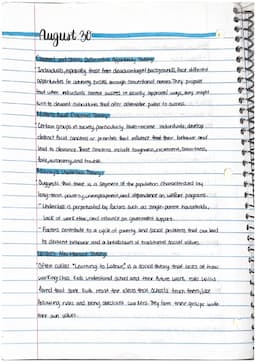 August 30
Cloward and Ohlin's Differential Opportunity Theory
Individuals, especially those from disadvantaged backgrounds, face different
opportunities for achieving success through conventional means. They propose
that when individuals cannot succeed in socially approved ways, they might
turn to deviant subcultures that offer alternative paths to success.
Miller's Focal Concerns Theory
Certain groups in society, particularly lower-income individuals, develop
distinct focal concerns or priorities that influence their behavior and
lead to deviance. These concerns include toughness, excitement, smartness,
fate, autonomy, and trouble.
Underclass Theory
Suggests that there is a segment of the population characterized by
long-term poverty, unemployment, and dependence on welfare programs.
- Underclass is perpetuated by factors such as single-parent households,
lack of work ethic, and reliance on government support.
- Factors contribute to a cycle of poverty and social problems that can lead
to deviant behavior and a breakdown of traditional social values.
Theory
Often called "Learning to Labour", is a social theory that looks at how
working class kids understand school and their future work. Willis
found that some kids resist the ideas that schools teach them, like
following rules and being obedient workers. They form their groups with
their own values.